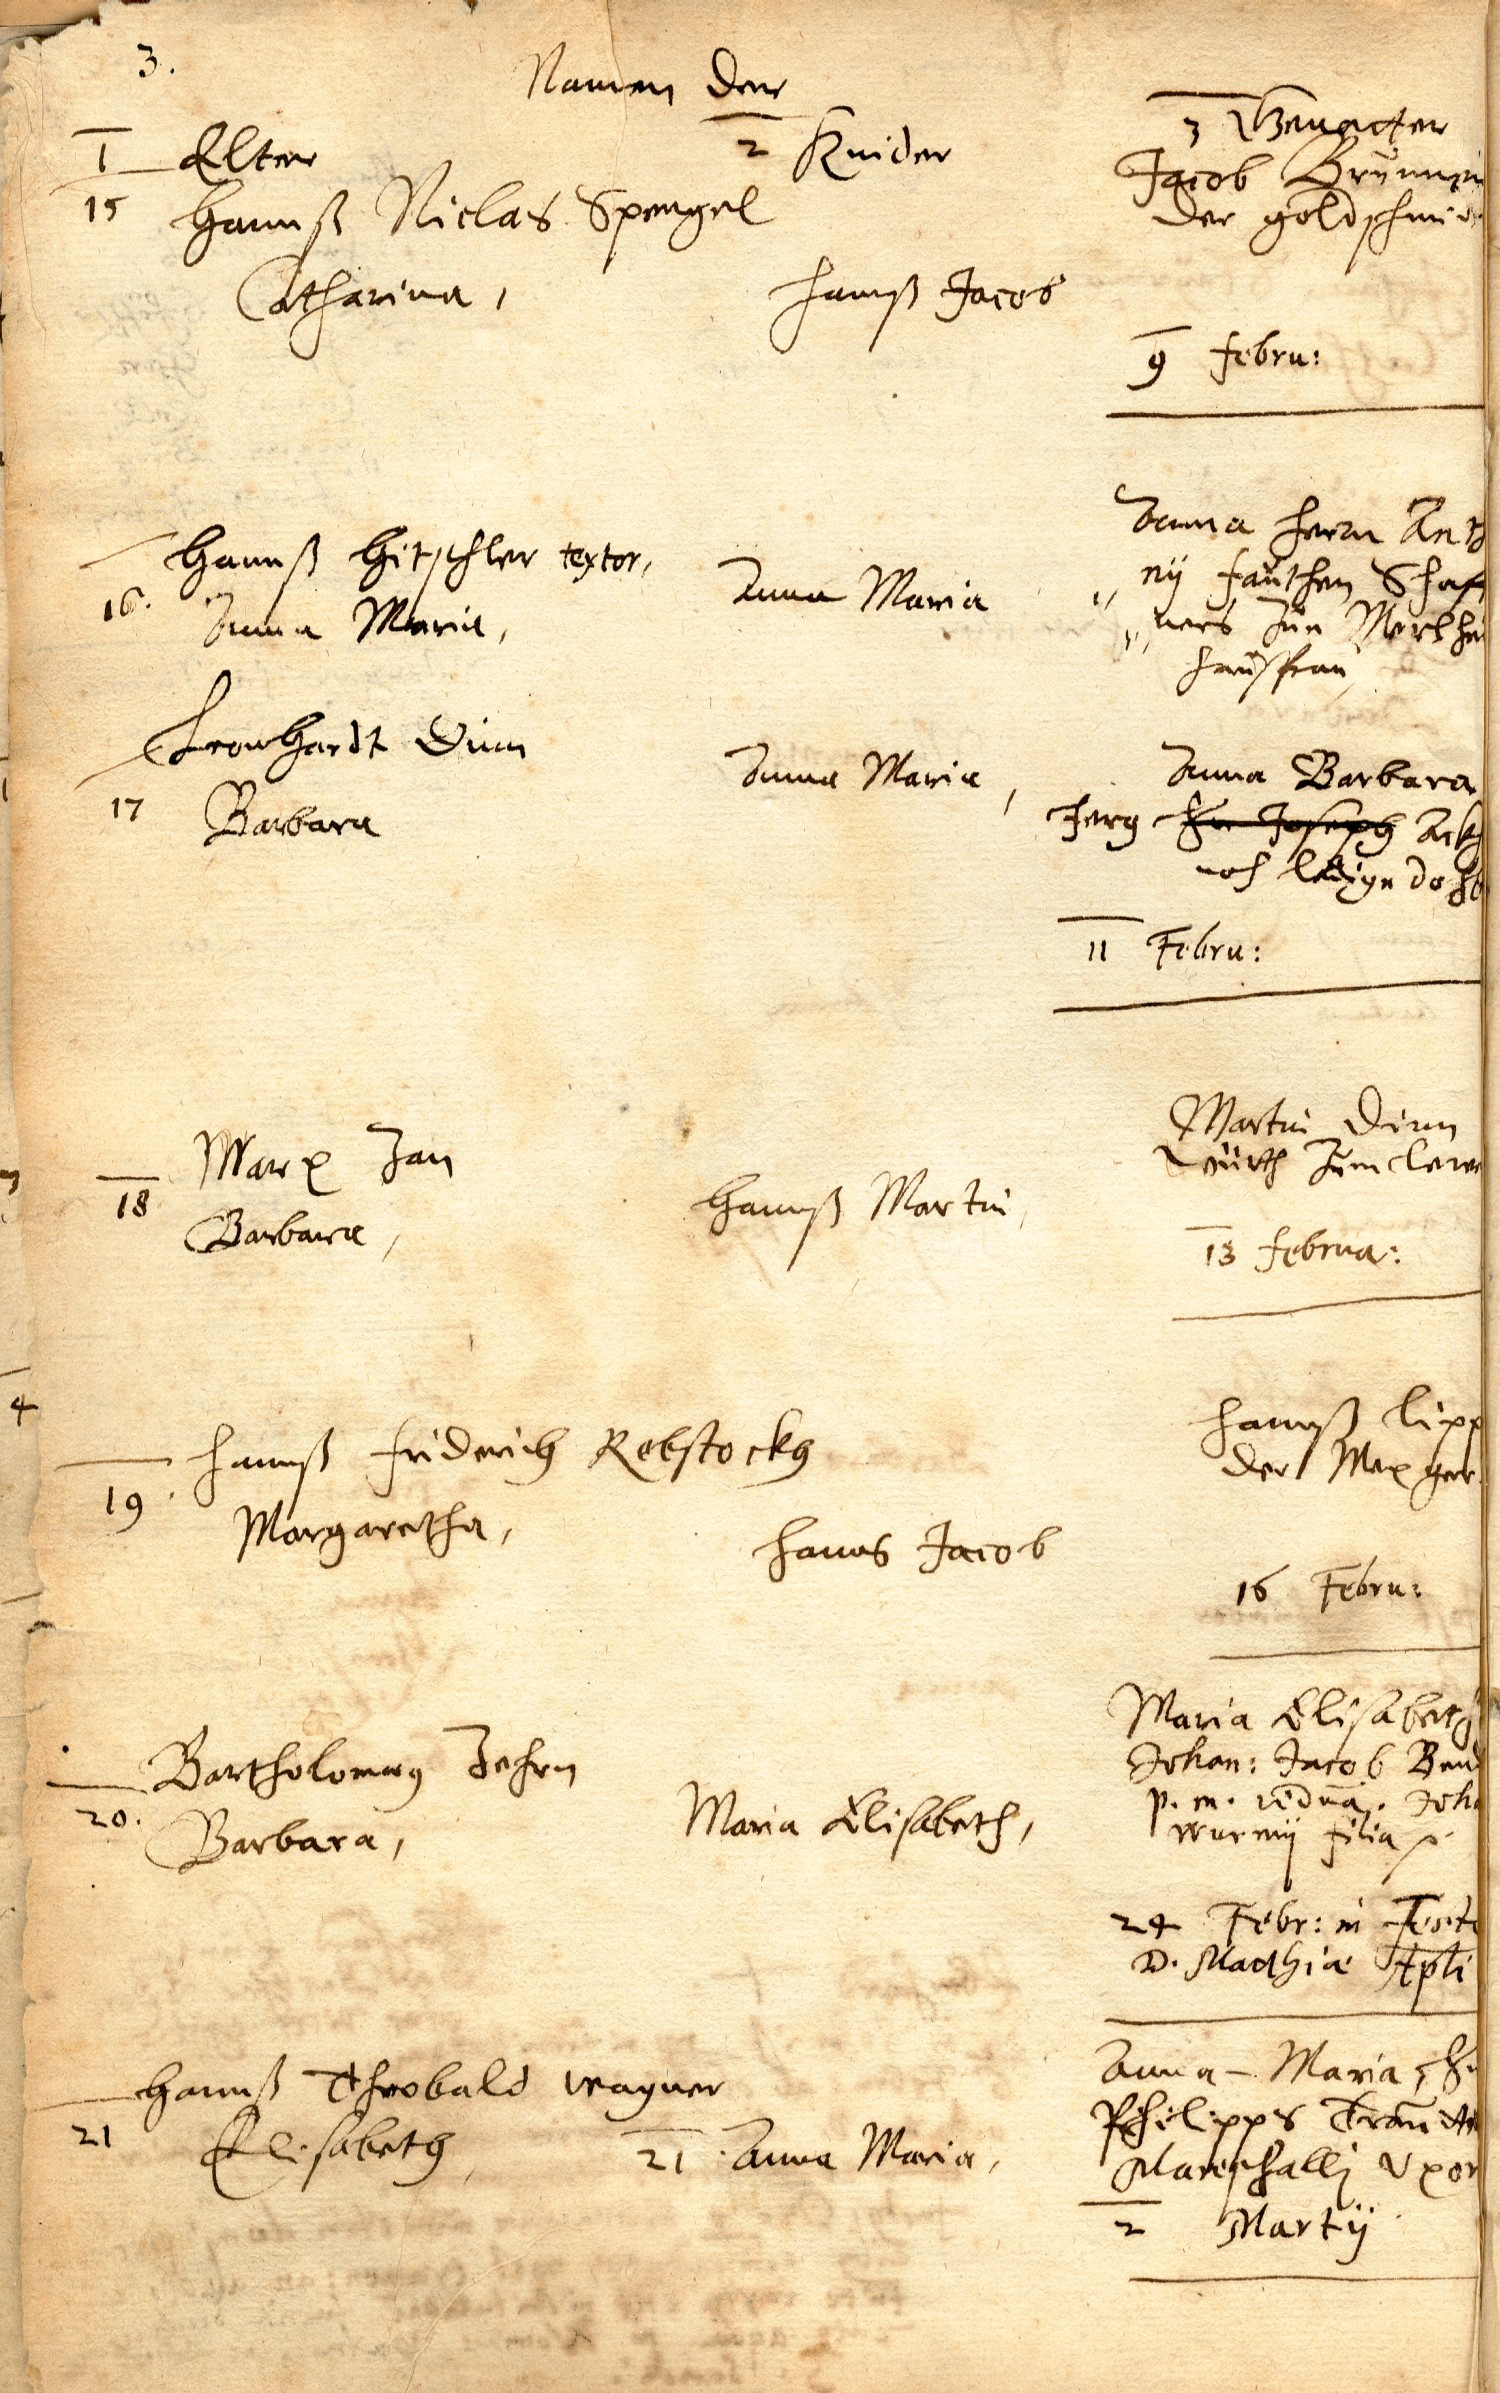 3.
Namen der
1 Elter
2 Kinder
3 Gevatter
15 Hannß Niclas Spengel
Catharina,
Hannß Jacob
Jacob
der goldschmid
9 Febru:
16. Hannß Hitschler textor,
Anna Maria,
Anna Maria
Anna Herrn
nÿ Fauthen Schaff
ners zue
haußfrau,
17 Leonhardt Dürn
Barbara
Anna Maria,
Anna Barbara
Jerg Joseph
noch ledige
11 Febru:
18 Marx Zan
Barbara,
Hannß Martin,
Martin Dirn
Würth zum
13 Februa:
19. Hannß Friderich Rebstockh
Margaretha,
Hanns Jacob
Hannß Lipp
der Mexger
16 Febru:
20. Bartholomaeg
Barbara,
Maria Elisabeth,
Maria Elisabeth
Johan: Jacob
p. m. vidua. Joha
Wurmÿ filia
24 Febr: in Festo
D. Matthiae Apli
21 Hannß Theobald Wagner
Elisabeth,
21. Anna Maria,
Anna-Maria,
Philipps
Marschalli Uxor
2 Martÿ